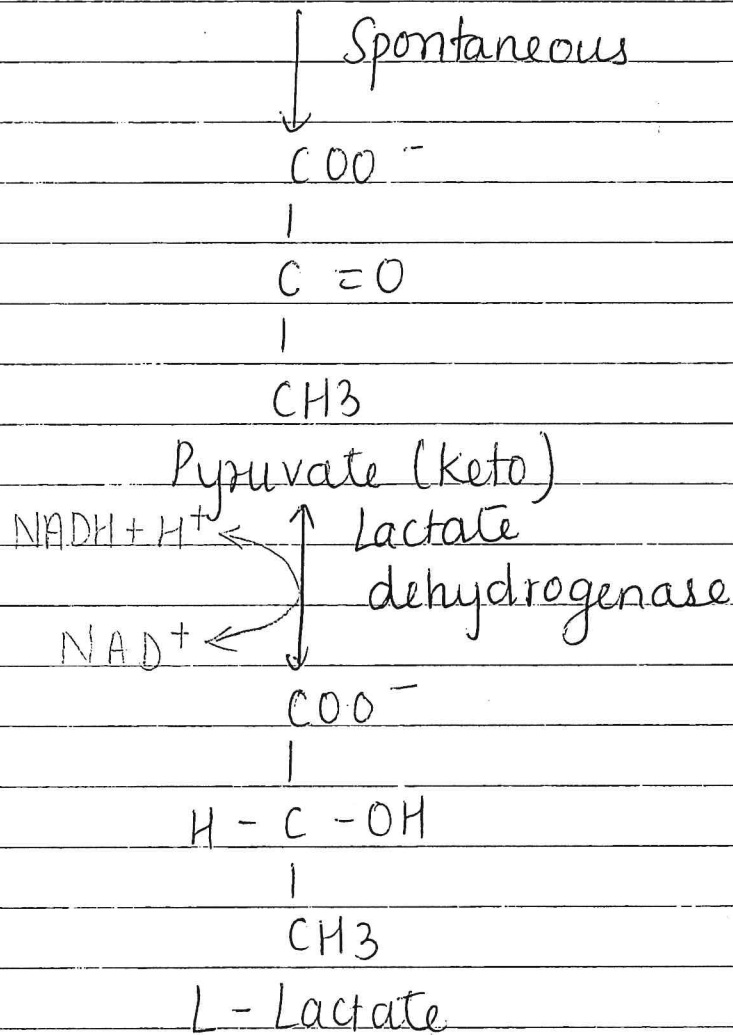 Spontaneous
COO⁻
|
C = O
|
CH3
Pyruvate (keto)
NADH + H⁺
Lactate
dehydrogenase
NAD⁺
COO⁻
|
H - C - OH
|
CH3
L - Lactate